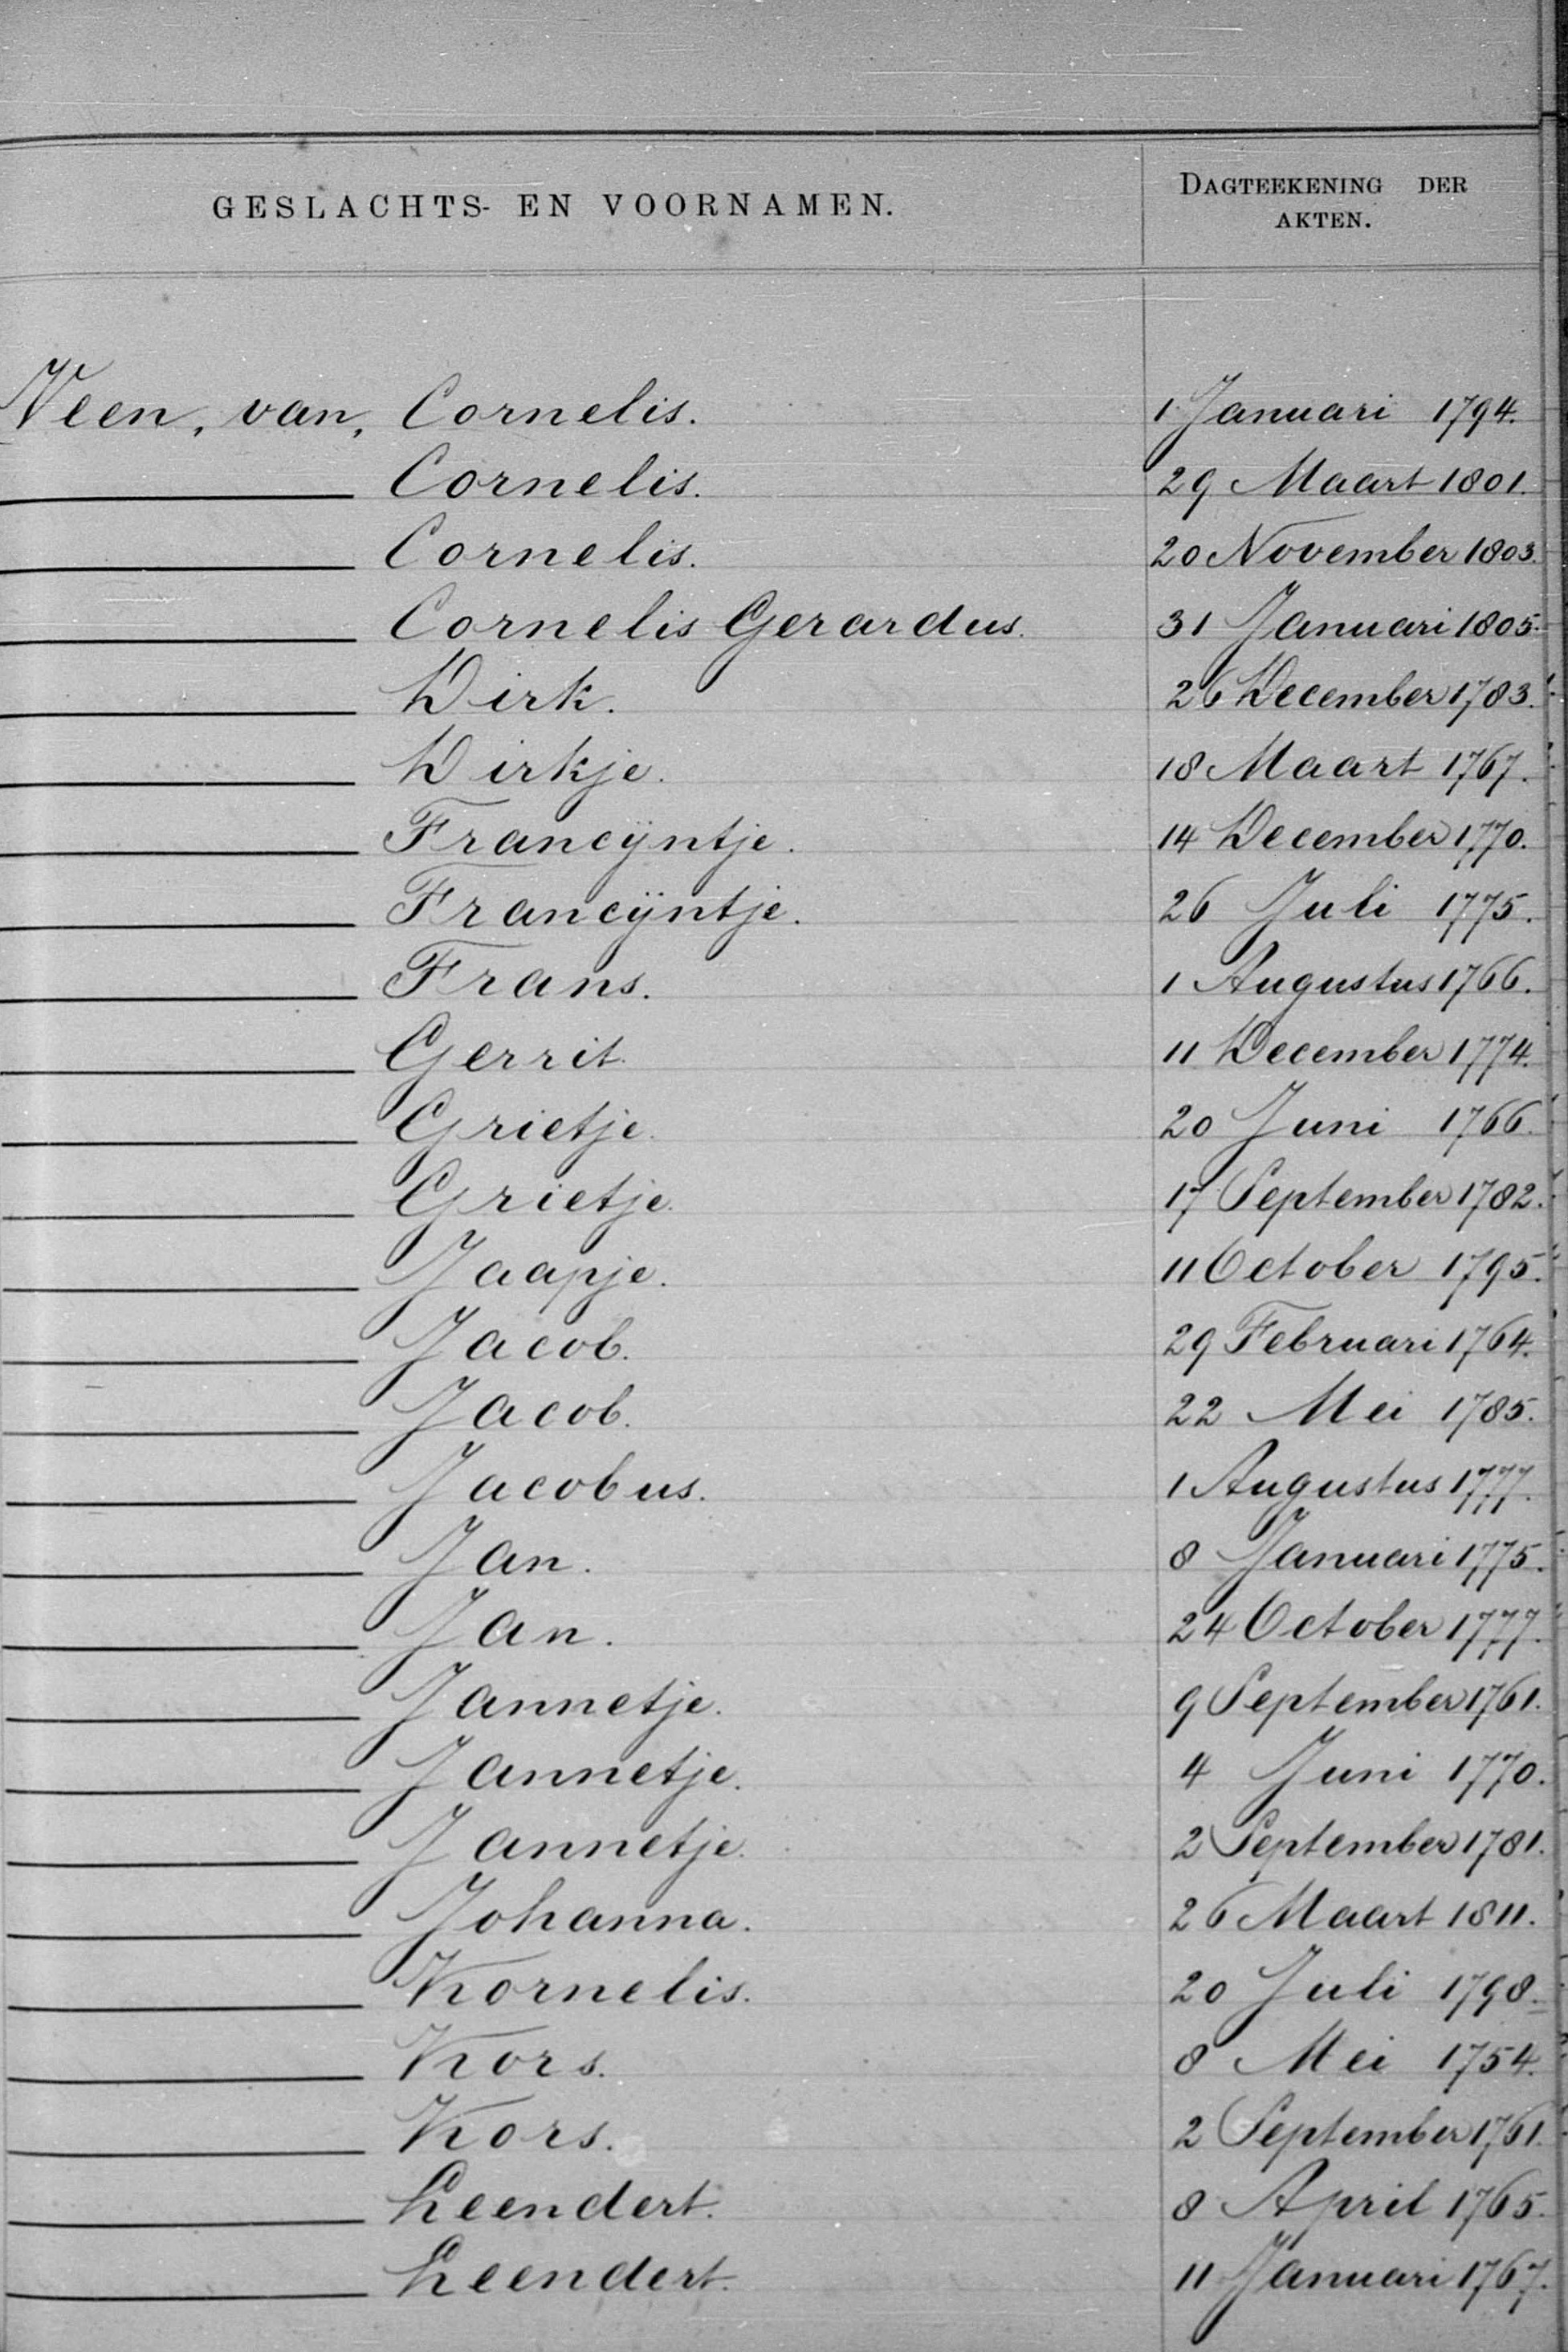 GESLACHTS- EN VOORNAMEN.
DAGTEEKENING DER
AKTEN.
Veen, van, Cornelis. 1 Januari 1794.
Cornelis. 29 Maart 1801.
Cornelis. 20 November 1803.
Cornelis Gerardus. 31 Januari 1805.
Dirk. 26 December 1783.
Dirkje. 18 Maart 1767.
Francijntje. 14 December 1770.
Francijntje. 26 Juli 1775.
Frans. 1 Augustus 1766.
Gerrit. 11 December 1774.
Grietje. 20 Juni 1766.
Grietje. 17 September 1782.
Jaapje. 11 October 1795.
Jacob. 29 Februari 1764.
Jacob. 22 Mei 1785.
Jacobus. 1 Augustus 1777.
Jan. 8 Januari 1775.
Jan. 24 October 1777.
Jannetje. 9 September 1761.
Jannetje. 4 Juni 1770.
Jannetje. 2 September 1781.
Johanna. 26 Maart 1811.
Kornelis. 20 Juli 1798.
Kors. 8 Mei 1754.
Kors. 2 September 1761.
Leendert. 8 April 1765.
Leendert. 11 Januari 1767.